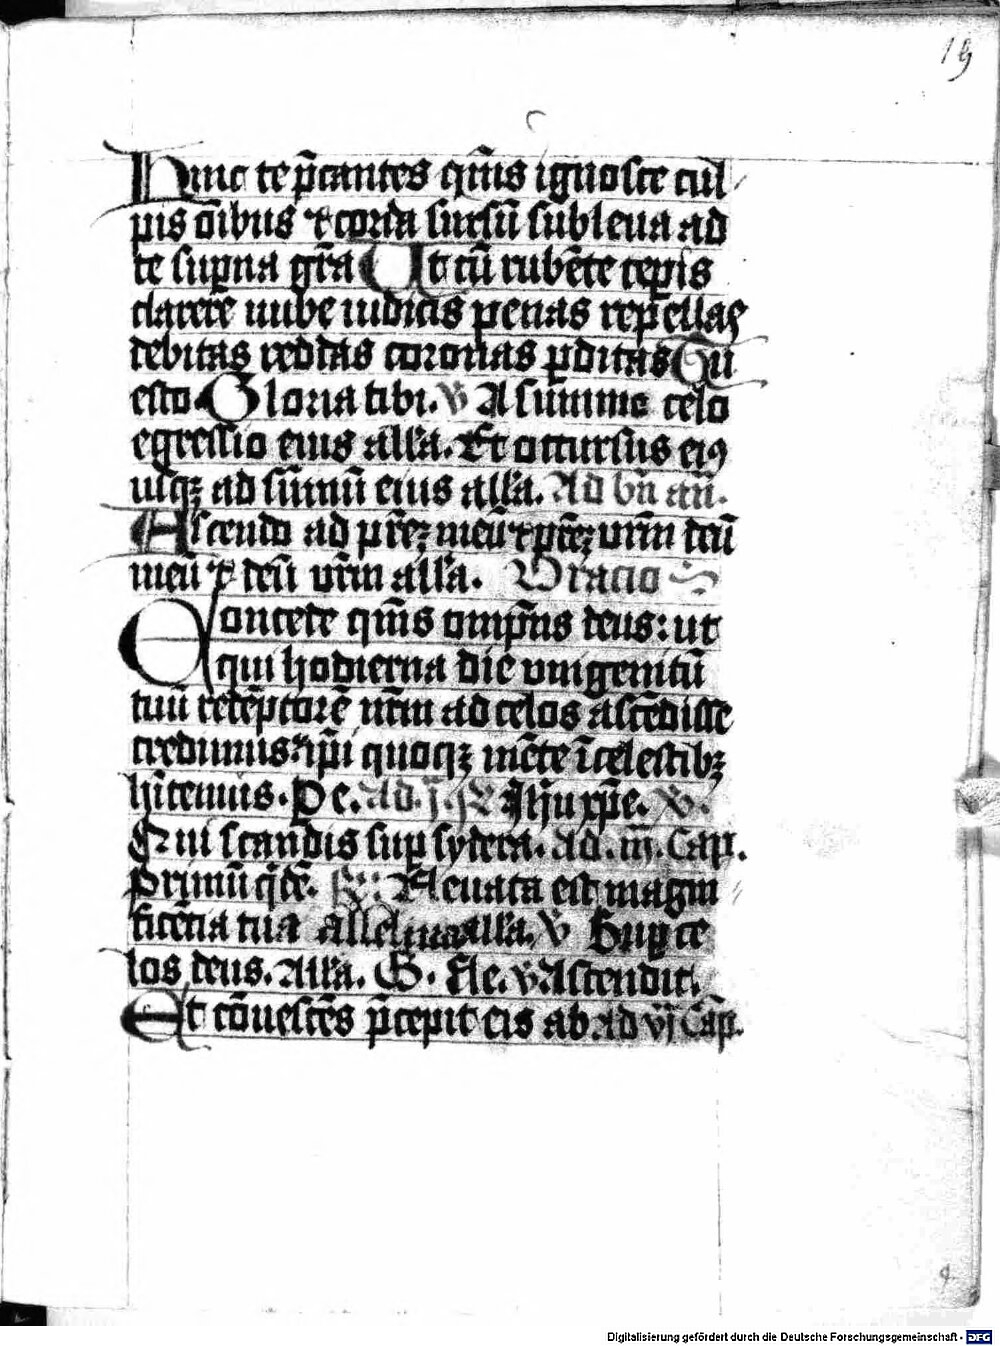 19
Hinc te p̄cantes q̄sm̄s ignosce cul
pis oībus ⁊ corda sursū subleua ad
te sup̲na gr̄a Ut cū rubēte cep̲is
clarere nube iudicis penas rep̲ellas
debitas reddas coronas p̲ditas Tu
esto. Gloria tibi. v̄ A summo celo
egressio eius all'a. Et occursus eiꝰ
usqꝫ ad sūmū eius all'a. Ad bn̄ an̄.
Ascendo ad pr̄eꝫ meū ⁊ pr̄eꝫ vr̄m deū
meū ⁊ deū vr̄m all'a. Oracio
Concede qm̄s omp̄ns deus: ut
qui hodierna die vnigenitū
tuū redēptorē nr̄m ad celos ascēdisse
credimus: ip̄i quoqꝫ mēte ī celestibꝫ
hītemus. P e. Ad .j. R̄ Ih̄u xp̄e. v̄.
Qui scandis sup̲ sydera. Ad .iij. Cap̄.
Primū q̄dē. R̄: Eleuata est magni
ficētia tua alleluia all'a. v̄ Sup̲ ce
los deus. All'a. G. Ele. v̄ Ascendit.
Et cōuescēs p̄cepit eis ab ad vj Cap̄.
Digitalisierung gefördert durch die Deutsche Forschungsgemeinschaft - DFG